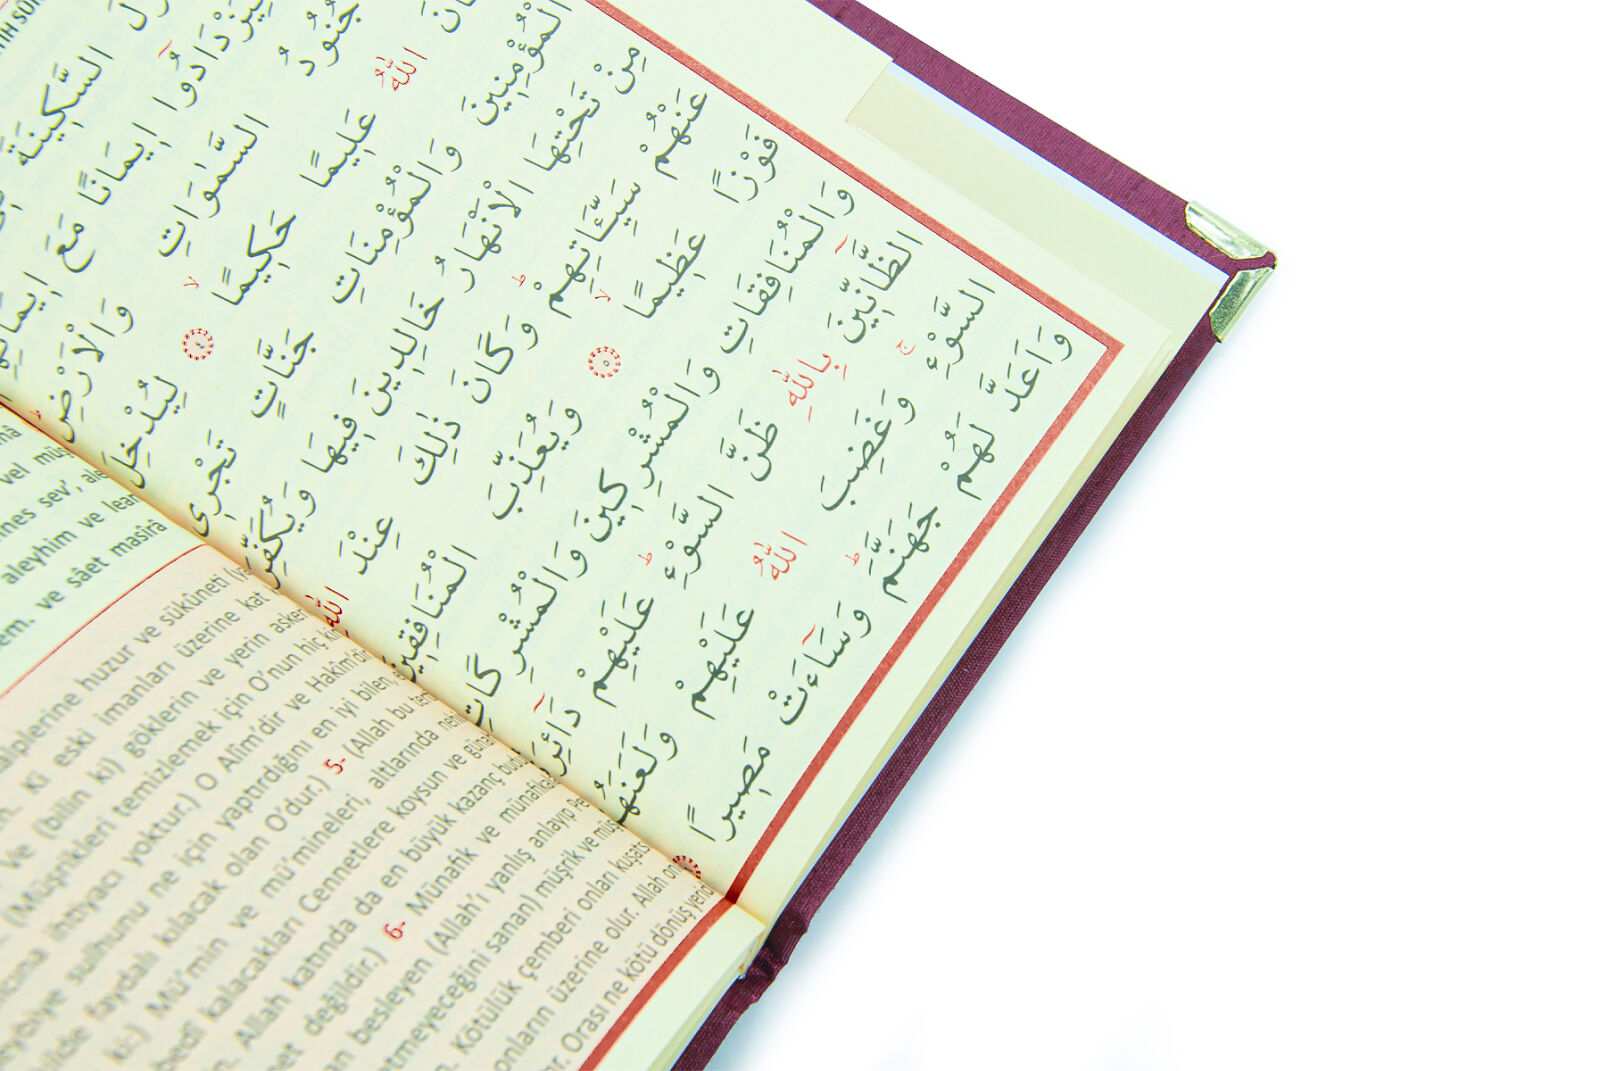 السَّكِينَةَ
لِيَزْدَادُٓوا اِيمَانًا مَعَ
جُنُودُ السَّمٰوَاتِ وَالْاَرْضِ
اللّٰهُ عَلِيمًا حَكِيمًا ۙ ﴿٤﴾ لِيُدْخِلَ
الْمُؤْمِنِينَ وَالْمُؤْمِنَاتِ جَنَّاتٍ تَجْرِى
مِنْ تَحْتِهَا الْاَنْهَارُ خَالِدِينَ فِيهَا وَيُكَفِّرَ
عَنْهُمْ سَيِّـَٔاتِهِمْ ۜ وَكَانَ ذٰلِكَ عِنْدَ اللّٰهِ
فَوْزًا عَظِيمًا ۙ ﴿٥﴾ وَيُعَذِّبَ الْمُنَافِقِينَ
وَالْمُنَافِقَاتِ وَالْمُشْرِكِينَ وَالْمُشْرِكَاتِ
الظَّٓانِّينَ بِاللّٰهِ ظَنَّ السَّوْءِ ۜ عَلَيْهِمْ دَٓائِرَةُ
السَّوْءِ ۚ وَغَضِبَ اللّٰهُ عَلَيْهِمْ وَلَعَنَهُمْ
وَاَعَدَّ لَهُمْ جَهَنَّمَ ۜ وَسَٓاءَتْ مَصِيرًا
vel
sev', ale
aleyhim ve
ve sâet masîrâ
huzur ve sükûneti
Ki eski imanları üzerine kat
ve (bilin ki) göklerin ve yerin asker
(Müşrikleri temizlemek için O'nun hiç
ihtiyacı yoktur.) O Alîm'dir ve Hakîm'dir
sulhunu ne için yaptırdığını en iyi bilen,
faydalı kılacak olan O'dur.) 5- (Allah bu
ki:) Mü'min ve mü'mineleri, altlarında
kalacakları Cennetlere koysun ve
Allah katında da en büyük kazanç
değildir.) 6- Münafık ve
besleyen (Allah'ı yanlış anlayıp
etmeyeceğini sanan) müşrik ve
Kötülük çemberi onları
onların üzerine olur. Allah
Orası ne kötü dönüş